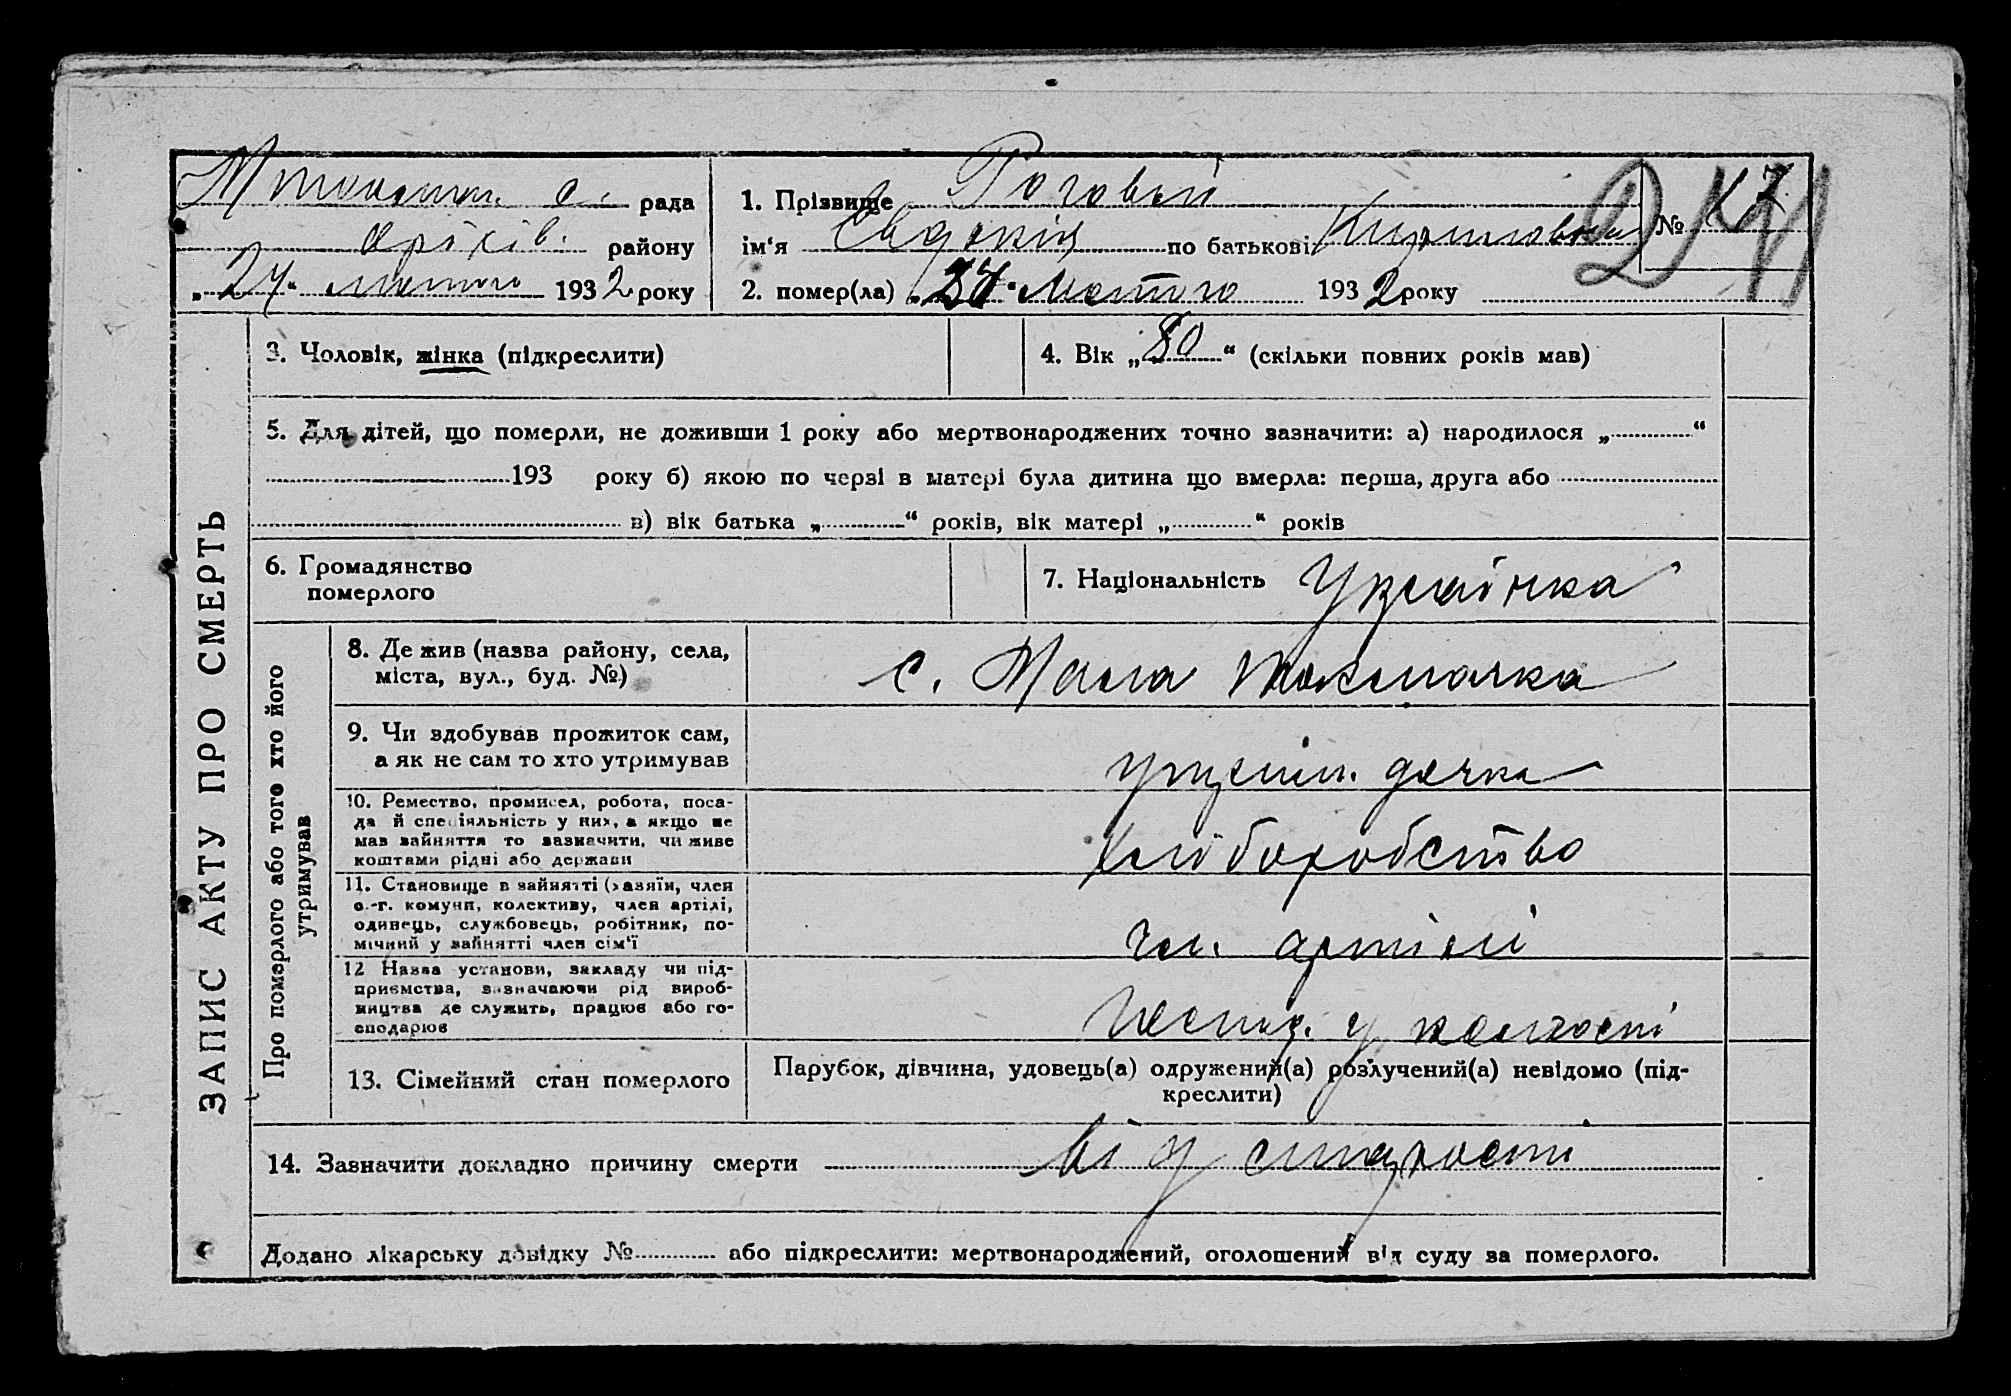 М Токмач. С. рада
Оріхів. району
„24“ лютого 1932 року
1. Прізвище Роговый
ім‘я Евдокія по батькові Кириловна
2. помер(ла) „ “ Лютого 1932 року
№ 7
ЗАПИС АКТУ ПРО СМЕРТЬ
3. Чоловік, жінка (підкреслити)
4. Вік „80“ (скільки повних років мав)
5. Для дітей, що померли, не доживши 1 року або мертвонароджених точно зазначити: а) народилося „ “
193 року б) якою по черзі в матері була дитина що вмерла: перша, друга або
в) вік батька „ “ років, вік матері „ “ років
6. Громадянство
померлого
7. Національність Українка
Про померлого або того хто його
утримував
8. Де жив (назва району, села,
міста, вул., буд. №)
с. Мала Токмачка
9. Чи здобував прожиток сам,
а як не сам то хто утримував
дочка
10. Ремество, промисел, робота, поса-
да й спеціяльність у них, а якщо не
мав зайняття то зазначити, чи живе
коштами рідні або держави
хліборобство
11. Становище в зайнятті (хазяїн, член
с.-г. комуни, колективу, член артілі,
одинець, службовець, робітник, по-
мічний у зайнятті член сім‘ї
чл. артілі
12 Назва установи, закладу чи під-
приємства, зазначаючи рід вироб-
ництва де служить, працює або го-
сподарює
у колгоспі
13. Сімейний стан померлого
Парубок, дівчина, удовець(а) одружений(а) розлучений(а) невідомо (під-
креслити)
14. Зазначити докладно причину смерти від старості
Додано лікарську довідку № або підкреслити: мертвонароджений, оголошений від суду за померлого.